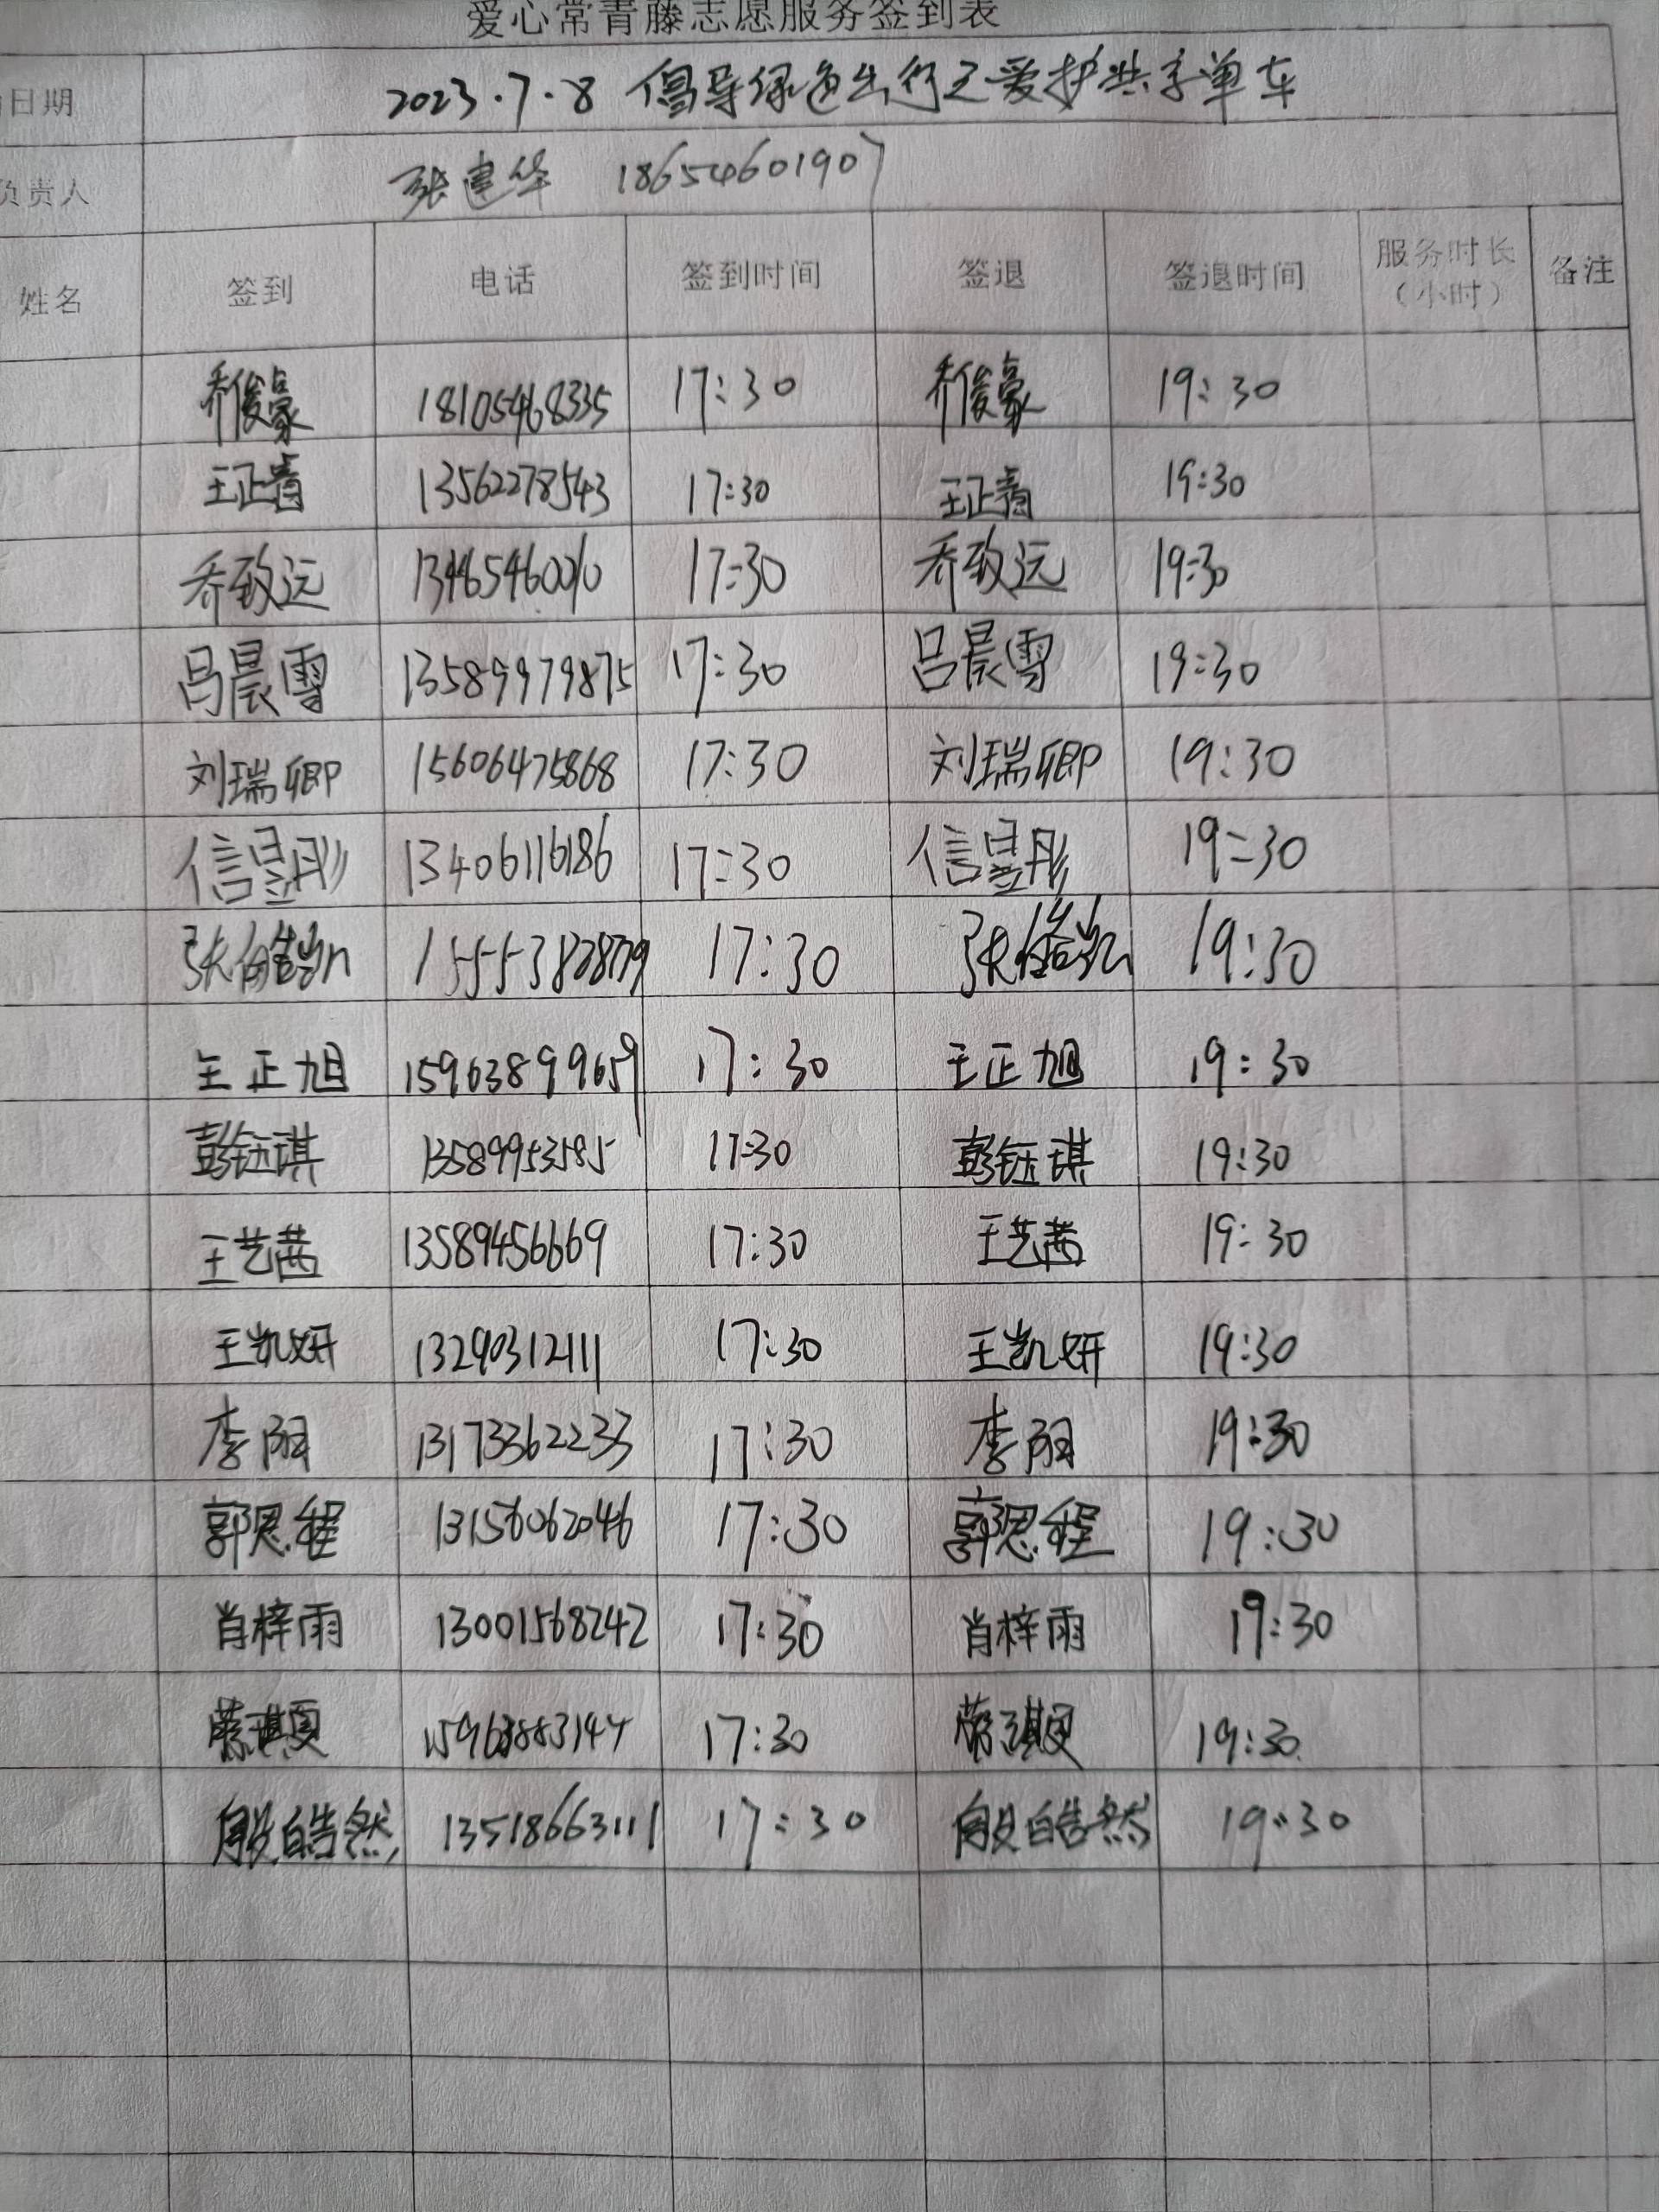 爱心常青藤志愿服务签到表
日期 2023.7.8 倡导绿色出行之爱护共享单车
负责人 张建华 18654601907
姓名 签到 电话 签到时间 签退 签退时间 服务时长（小时） 备注
乔俊豪 18105468335 17:30 乔俊豪 19:30
王正青 13562278543 17:30 王正青 19:30
乔致远 17:30 乔致远 19:30
吕晨雪 13589979875 17:30 吕晨雪 19:30
刘瑞卿 15606475868 17:30 刘瑞卿 19:30
信昱彤 13406116186 17:30 信昱彤 19:30
17:30 19:30
王正旭 15963899659 17:30 王正旭 19:30
彭钰琪 13589953585 17:30 彭钰琪 19:30
王艺茜 13589456669 17:30 王艺茜 19:30
王凯妍 13290312111 17:30 王凯妍 19:30
李丽 13173362233 17:30 李丽 19:30
郭恩程 13156062046 17:30 郭恩程 19:30
肖梓雨 13001568242 17:30 肖梓雨 19:30
17:30 19:30
殷皓然 13518663111 17:30 殷皓然 19:30